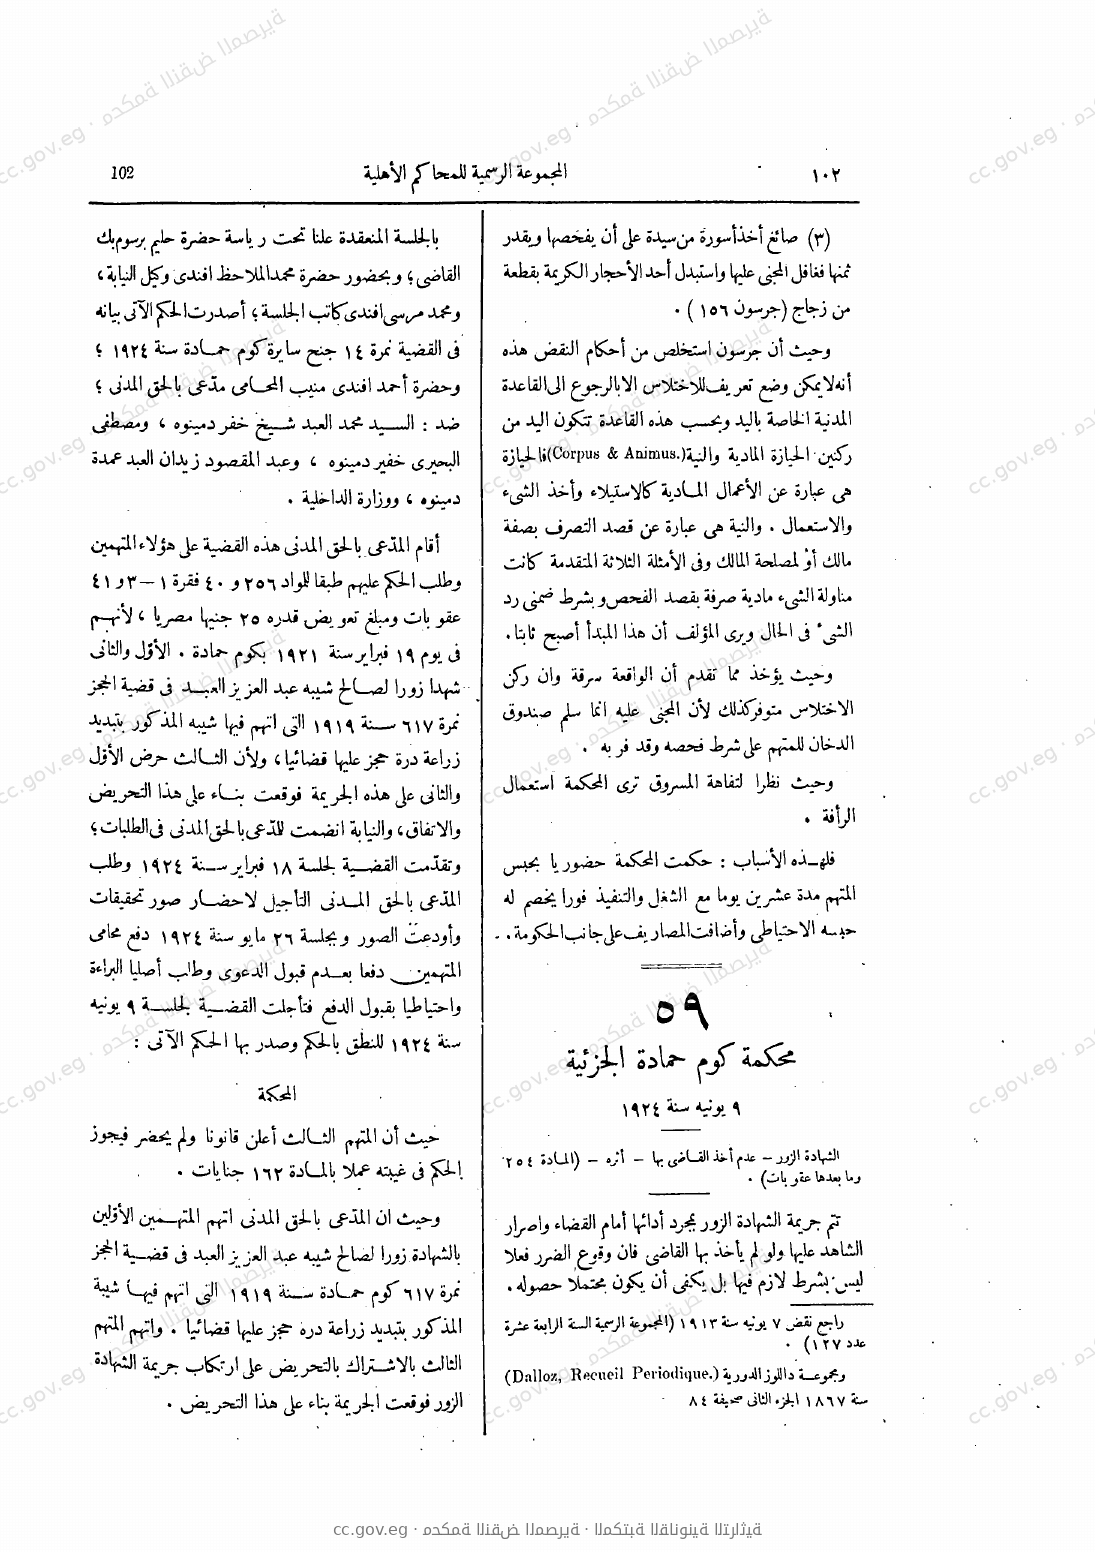 ١٠٢
المجموعة الرسمية للمحاكم الأهلية
102
(٣) صائغ أخذ أسورة من سيدة على أن يفحصها ويقدر
ثمنها فغافل المجنى عليها واستبدل أحد الأحجار الكريمة بقطعة
من زجاج (جرسون ١٥٦) .
وحيث أن جرسون استخلص من أحكام النقض هذه
أنه لا يمكن وضع تعريف للاختلاس الا بالرجوع الى القاعدة
المدنية الخاصة باليد وبحسب هذه القاعدة تتكون اليد من
ركنين الحيازة المادية والنية (Corpus & Animus.) فالحيازة
هى عبارة عن الأعمال المادية كالاستيلاء وأخذ الشىء
والاستعمال . والنية هى عبارة عن قصد التصرف بصفة
مالك أو لمصلحة المالك وفى الأمثلة الثلاثة المتقدمة كانت
مناولة الشىء مادية صرفة بقصد الفحص وبشرط ضمنى رد
الشىء فى الحال ويرى المؤلف أن هذا المبدأ أصبح ثابتا .
وحيث يؤخذ مما تقدم أن الواقعة سرقة وان ركن
الاختلاس متوفر كذلك لأن المجنى عليه انما سلم صندوق
الدخان للمتهم على شرط فحصه وقد فر به .
وحيث نظرا لتفاهة المسروق ترى المحكمة استعمال
الرأفة .
فلهذه الأسباب : حكمت المحكمة حضوريا بحبس
المتهم مدة عشرين يوما مع الشغل والتنفيذ فورا يخصم له
حبسه الاحتياطى وأضافت المصاريف على جانب الحكومة .
٥٩
محكمة كوم حمادة الجزئية
٩ يونيه سنة ١٩٢٤
الشهادة الزور – عدم أخذ القاضى بها – أثره – (المادة ٢٥٤
وما بعدها عقوبات) .
تتم جريمة الشهادة الزور بمجرد أدائها أمام القضاء واصرار
الشاهد عليها ولو لم يأخذ بها القاضى فان وقوع الضرر فعلا
ليس بشرط لازم فيها بل يكفى أن يكون محتملا حصوله .
راجع نقض ٧ يونيه سنة ١٩١٣ (المجموعة الرسمية السنة الرابعة عشرة
عدد ١٢٧) .
ومجموعة داللوز الدورية (Dalloz, Recueil Periodique.)
سنة ١٨٦٧ الجزء الثانى صحيفة ٨٤
بالجلسة المنعقدة علنا تحت رياسة حضرة حليم برسوم بك
القاضى ؛ وبحضور حضرة محمد الملاحظ افندى وكيل النيابة ،
ومحمد مرسى افندى كاتب الجلسة ؛ أصدرت الحكم الآتى بيانه
فى القضية نمرة ١٤ جنح سايرة كوم حمادة سنة ١٩٢٤ ؛
وحضرة أحمد افندى منيب المحامى مدّعى بالحق المدنى ؛
ضد : السيد محمد العبد شيخ خفر دمينوه ، ومصطفى
البحيرى خفير دمينوه ، وعبد المقصود زيدان العبد عمدة
دمينوه ، ووزارة الداخلية .
أقام المدّعى بالحق المدنى هذه القضية على هؤلاء المتهمين
وطلب الحكم عليهم طبقا للمواد ٢٥٦ و ٤٠ فقرة ١ – ٣ و ٤١
عقوبات ومبلغ تعويض قدره ٢٥ جنيها مصريا ، لأنهم
فى يوم ١٩ فبراير سنة ١٩٢١ بكوم حمادة . الأوّل والثانى
شهدا زورا لصالح شيبه عبد العزيز العبد فى قضية الحجز
نمرة ٦١٧ سنة ١٩١٩ التى اتهم فيها شيبه المذكور بتبديد
زراعة درة حجز عليها قضائيا ، ولأن الثالث حرض الأوّل
والثانى على هذه الجريمة فوقعت بناء على هذا التحريض
والاتفاق ، والنيابة انضمت للمدّعى بالحق المدنى فى الطلبات ؛
وتقدّمت القضية لجلسة ١٨ فبراير سنة ١٩٢٤ وطلب
المدّعى بالحق المدنى التأجيل لاحضار صور تحقيقات
وأودعت الصور وبجلسة ٢٦ مايو سنة ١٩٢٤ دفع محامى
المتهمين دفعا بعدم قبول الدعوى وطلب أصليا البراءة
واحتياطيا بقبول الدفع فتأجلت القضية لجلسة ٩ يونيه
سنة ١٩٢٤ للنطق بالحكم وصدر بها الحكم الآتى :
المحكمة
حيث أن المتهم الثالث أعلن قانونا ولم يحضر فيجوز
الحكم فى غيبته عملا بالمادة ١٦٢ جنايات .
وحيث ان المدّعى بالحق المدنى اتهم المتهمين الأوّلين
بالشهادة زورا لصالح شيبه عبد العزيز العبد فى قضية الحجز
نمرة ٦١٧ كوم حمادة سنة ١٩١٩ التى اتهم فيها شيبة
المذكور بتبديد زراعة دره حجز عليها قضائيا . واتهم المتهم
الثالث بالاشتراك بالتحريض على ارتكاب جريمة الشهادة
الزور فوقعت الجريمة بناء على هذا التحريض .
cc.gov.eg · محكمة النقض المصرية · المكتبة القانونية التراثية